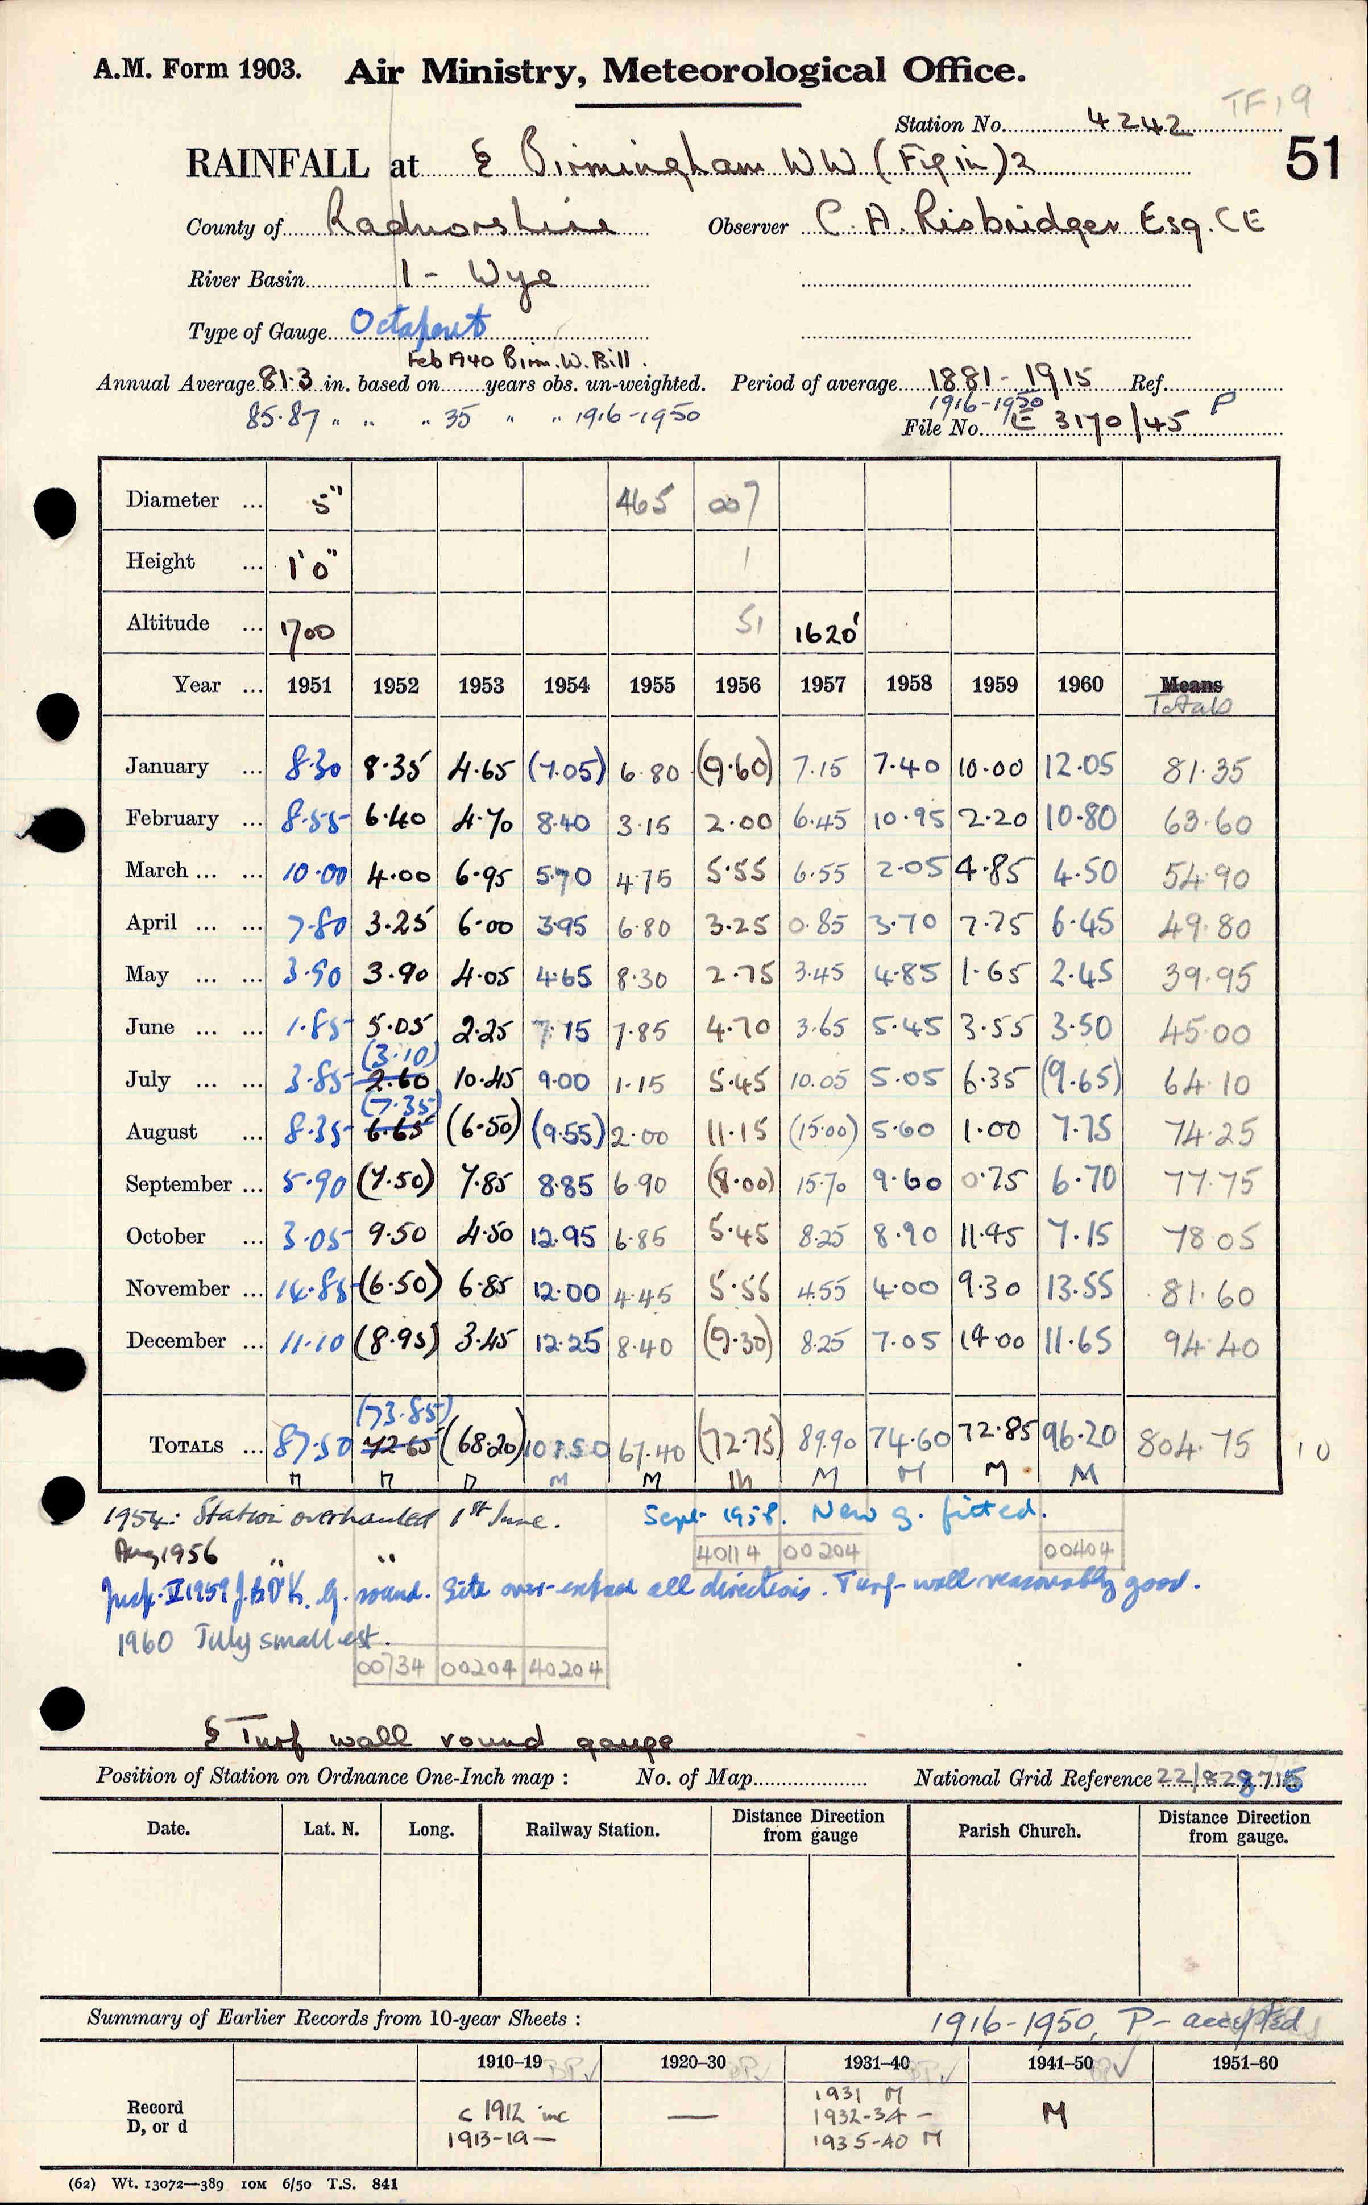 A.M. Form 1903. Air Ministry, Meteorological Office.
TF19
Station No. 4242
51
RAINFALL at § Birmingham WW (Figin) 2
County of Radnorshire Observer C. A. Risbridger Esq. CE
River Basin 1 - Wye
Type of Gauge Octapent
Feb 1940 Birm. W. Bill.
Annual Average 81.3 in. based on years obs. un-weighted. Period of average 1881-1915 Ref.
85.87 " " " 35 " " 1916-1950 1916-1950 P
File No. E 3170/45
Diameter ... 5" 465 007
Height ... 1'0" 1
Altitude ... 1700 51 1620'
Year ... 1951 1952 1953 1954 1955 1956 1957 1958 1959 1960 Means
Totals
January ... 8.30 8.35 4.65 (7.05) 6.80 (9.60) 7.15 7.40 10.00 12.05 81.35
February ... 8.55 6.40 4.70 8.40 3.15 2.00 6.45 10.95 2.20 10.80 63.60
March ... ... 10.00 4.00 6.95 5.70 4.75 5.55 6.55 2.05 4.85 4.50 54.90
April ... ... 7.80 3.25 6.00 3.95 6.80 3.25 0.85 3.70 7.75 6.45 49.80
May ... ... 3.90 3.90 4.05 4.65 8.30 2.75 3.45 4.85 1.65 2.45 39.95
June ... ... 1.85 5.05 2.25 7.15 7.85 4.70 3.65 5.45 3.55 3.50 45.00
(3.10)
July ... ... 3.85 2.60 10.45 9.00 1.15 5.45 10.05 5.05 6.35 (9.65) 64.10
(7.35)
August ... 8.35 6.65 (6.50) (9.55) 2.00 11.15 (15.00) 5.60 1.00 7.75 74.25
September ... 5.90 (7.50) 7.85 8.85 6.90 (8.00) 15.70 9.60 0.75 6.70 77.75
October ... 3.05 9.50 4.50 12.95 6.85 5.45 8.25 8.90 11.45 7.15 78.05
November ... 14.85 (6.50) 6.85 12.00 4.45 5.55 4.55 4.00 9.30 13.55 81.60
December ... 11.10 (8.95) 3.45 12.25 8.40 (9.30) 8.25 7.05 14.00 11.65 94.40
(73.85)
TOTALS ... 87.50 72.65 (68.20) 101.50 67.40 (72.75) 89.90 74.60 72.85 96.20 804.75 10
M M M M M M M M M M
1954: Station overhauled 1st June. Sept 1958. New g. fitted.
Aug 1956 " " 40114 00204 00404
Insp. V 1959 G. sound. Site over-exposed all directions. Turf-wall reasonably good.
1960 July small est.
00734 00204 40204
§ Turf wall round gauge
Position of Station on Ordnance One-Inch map : No. of Map National Grid Reference 22/828716
Date. Lat. N. Long. Railway Station. Distance Direction from gauge Parish Church. Distance Direction from gauge.
Summary of Earlier Records from 10-year Sheets : 1916-1950, P- accepted
1910–19 1920–30 1931–40 1941–50 1951–60
Record D, or d
c 1912 inc
1913-19 —
—
1931 M
1932-34 -
1935-40 M
M
(62) Wt. 13072—389 10M 6/50 T.S. 841